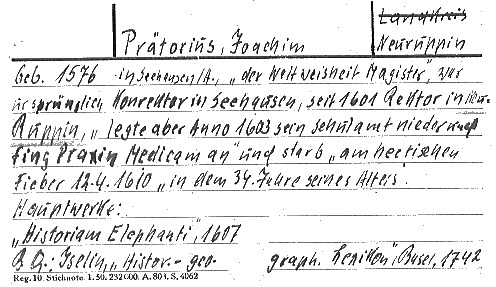 Landkreis
Prätorius, Joachim
Neuruppin
Geb. 1576 in Seehausen/A., „der Weltweisheit Magister", war
ursprünglich Konrektor in Seehausen, seit 1601 Rektor in Neu-
Ruppin, „legte aber Anno 1603 sein Schulamt nieder und
fing Praxin Medicam an" und starb „am hectischen
Fieber 12.4.1610 „in dem 34. Jahre seines Alters.
Hauptwerke:
„Historiam Elephanti", 1607
B.Q.: Iselin, „Histor.-geo- graph. Lexikon", Basel, 1742
Reg. 10. Stichnote. 1. 50. 232000. A. 803. S. 4062